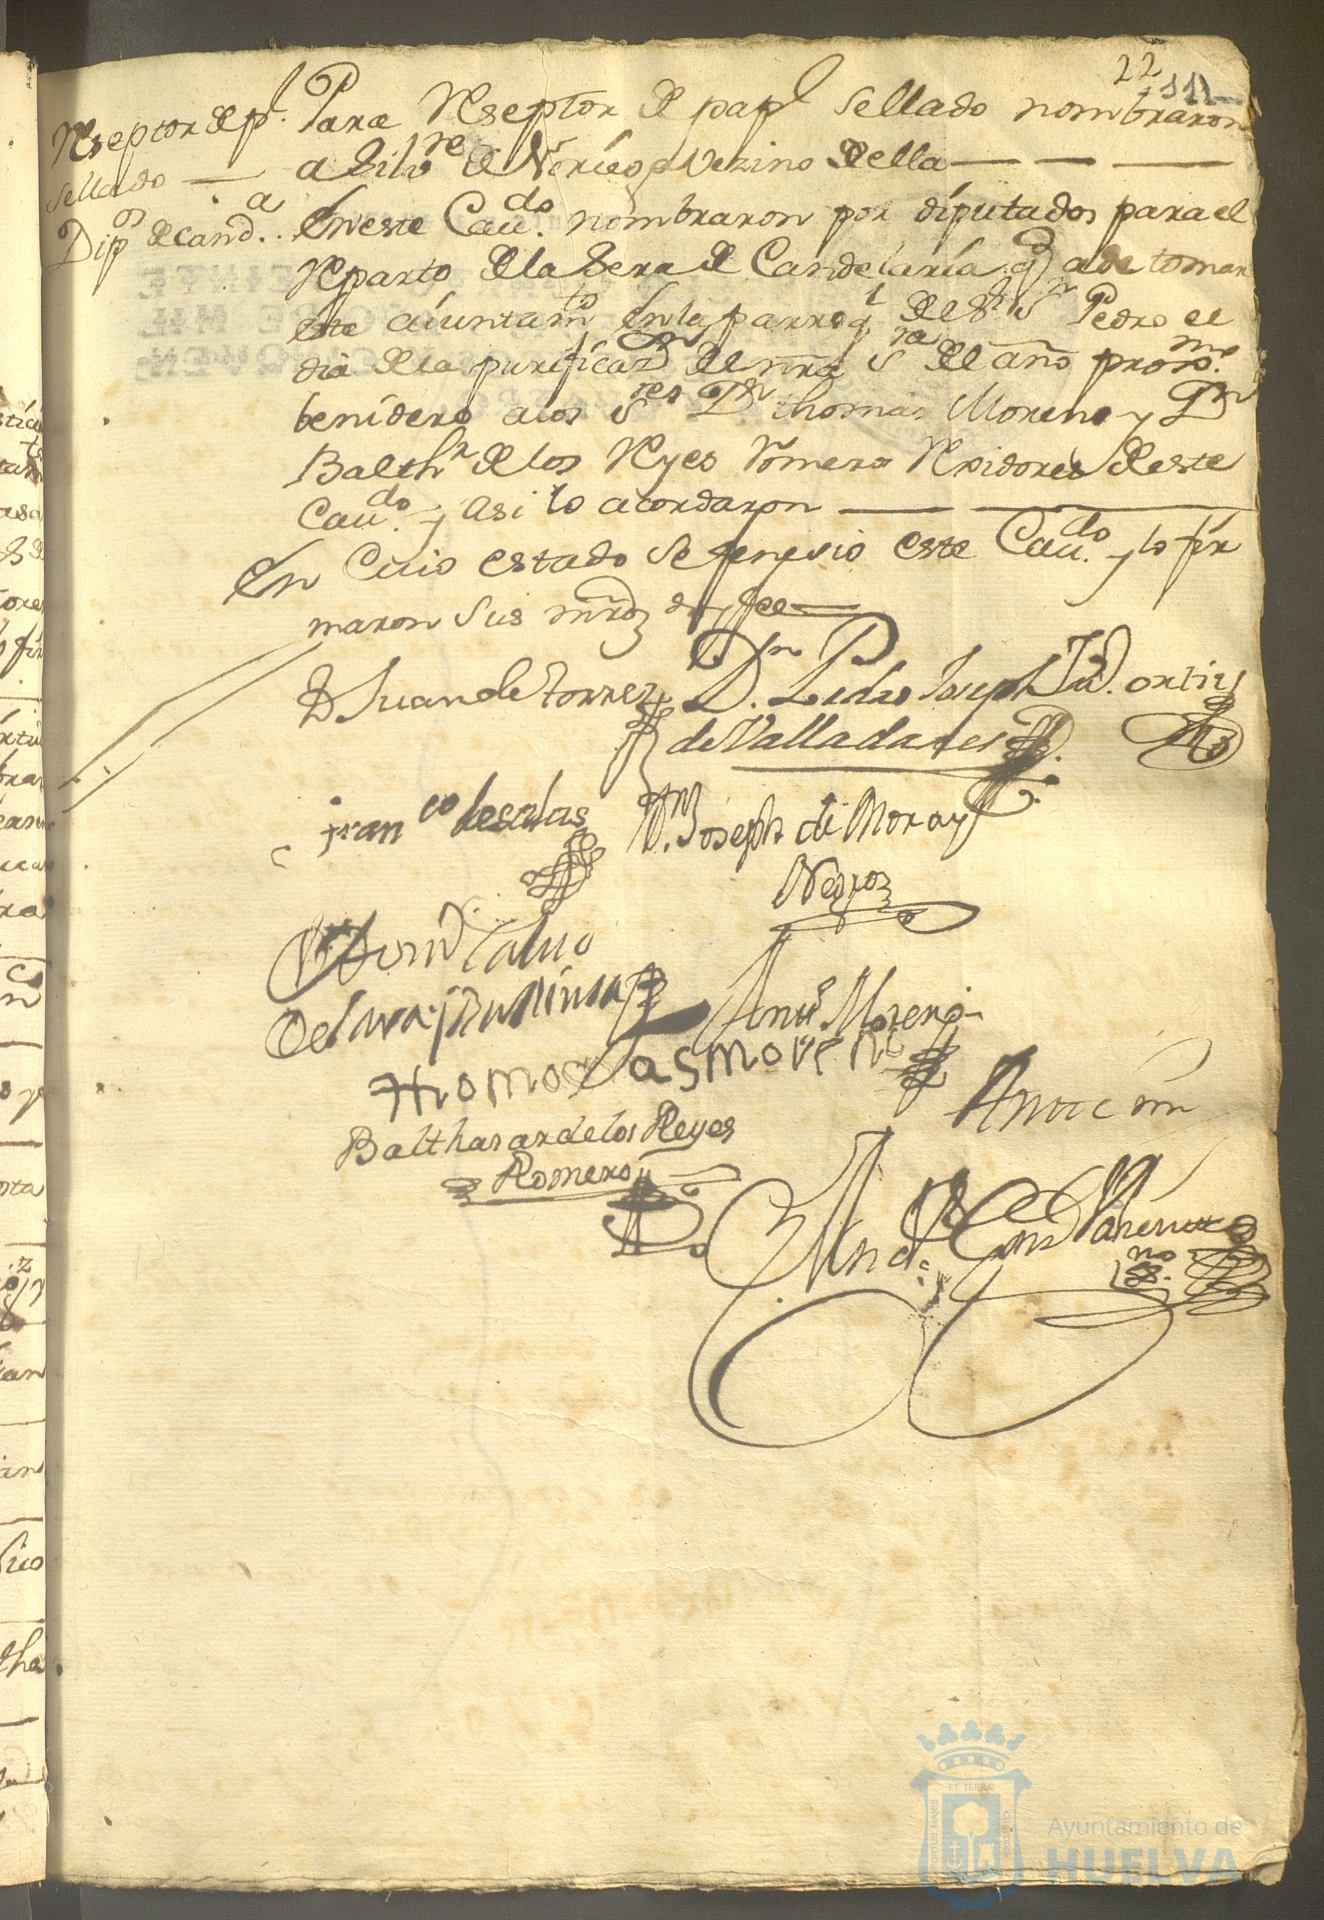 22
111
Rseptor de pl.
sellado
Dipos de cand.a
Para Rseptor de papl sellado nombraron
a Silvre de Noriega Vezino de ella
En este Caudo. nombraron por diputados para el
Reparto de la Sera de Candelaria q ade tomar
este aiuntamto En la parroql de Sr Sn Pedro el
dia de la purificazn de nra Sra del año proxmo.
benidero a los Sres Dn thomas Moreno y Dn
Balthr de los Reyes Romero Rejidores de este
Caudo. y asi lo acordaron
En Cuio estado se fenesio este Caudo. y lo fir
maron Sus mrds doy fee
D Juan de torres
Dn. Pedro Joseph
de Valladares
Ju. ortiz
Franco de salas
Dn. Joseph de Mora y
Negron
Domo Calvo
Antto Moreno
Thomas moreno
Balthasar de los Reyes
Romero
Ante mi
sno.
ET TERRÆ
PORTUS MARIS
CUSTODIA
Ayuntamiento de
HUELVA